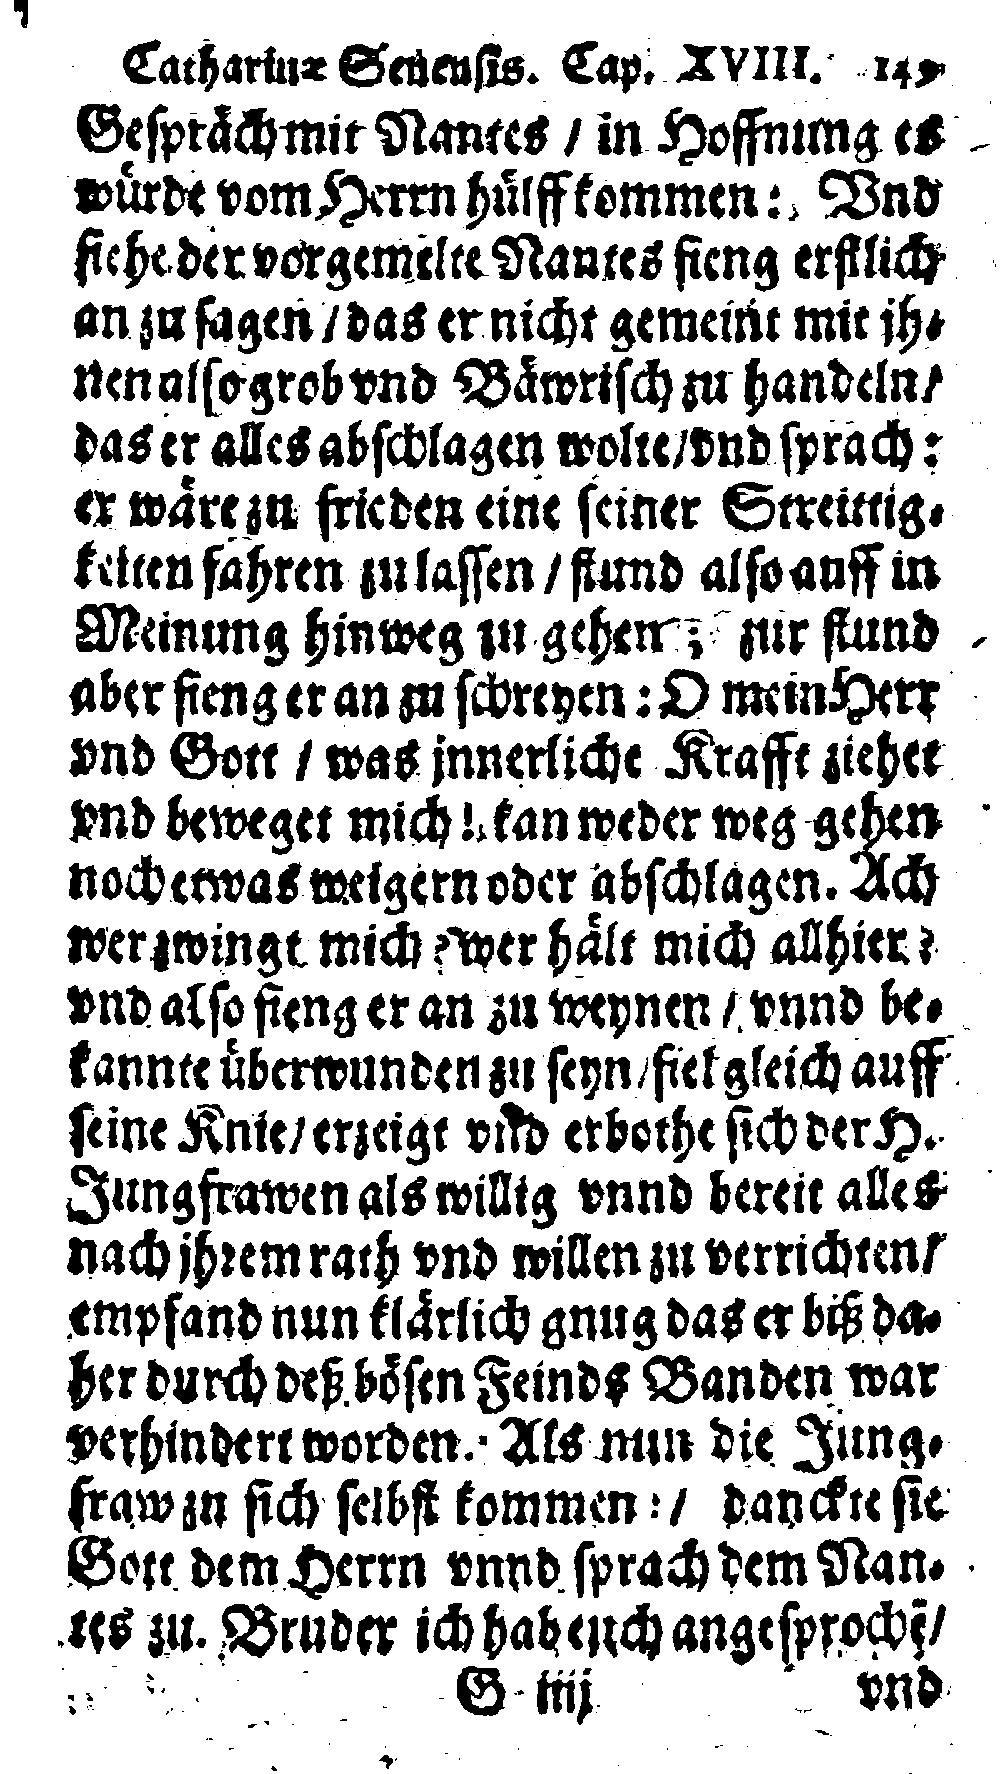 Catharinæ Senensis. Cap. XVIII.
Gespräch mit Nantes / in Hoffnung es
würde vom Herrn hülff kommen: Vnd
siehe der vorgemelte Nantes fieng erstlich
an zu sagen / das er nicht gemeint mit jh-
nen also grob vnd Bäwrisch zu handeln /
das er alles abschlagen wolte / vnd sprach:
er wäre zu frieden eine seiner Streittig-
keiten fahren zu lassen / stund also auff in
Meinung hinweg zu gehen ; zur stund
aber fieng er an zu schreyen: O mein Herr
vnd Gott / was jnnerliche Krafft ziehet
vnd beweget mich! kan weder weg gehen
noch etwas weigern oder abschlagen. Ach
wer zwingt mich? wer hält mich allhier?
vnd also fieng er an zu weynen / vnnd be-
kannte überwunden zu seyn / fiel gleich auff
seine Knie / erzeigt vnd erbothe sich der H.
Jungfrawen als willig vnnd bereit alles
nach jhrem rath vnd willen zu verrichten /
empfand nun klärlich gnug das er biß da-
her durch deß bösen Feinds Banden war
verhindert worden. Als nun die Jung-
fraw zu sich selbst kommen: / danckte sie
Gott dem Herrn vnnd sprach dem Nan-
tes zu. Bruder ich hab euch angesprochẽ /
G iiij vnd